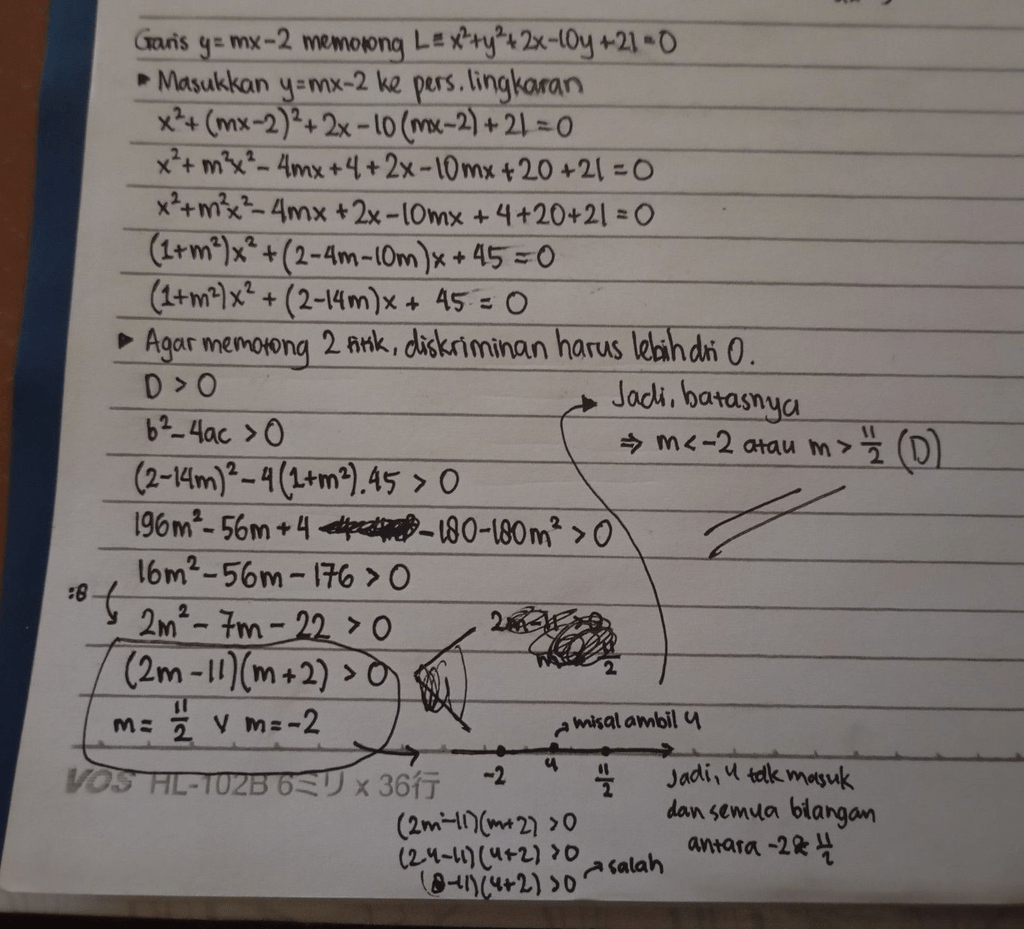 Garis y=mx-2 memotong L≡x²+y²+2x-10y+21=0
▸ Masukkan y=mx-2 ke pers. lingkaran
x²+(mx-2)²+2x-10(mx-2)+21=0
x²+m²x²-4mx+4+2x-10mx+20+21=0
x²+m²x²-4mx+2x-10mx+4+20+21=0
(1+m²)x²+(2-4m-10m)x+45=0
(1+m²)x²+(2-14m)x+45=0
▸ Agar memotong 2 titik, diskriminan harus lebih dri 0.
D > 0
b²-4ac > 0
(2-14m)²-4(1+m²).45 > 0
196m²-56m+4 -180-180m² > 0
16m²-56m-176 > 0
:8
2m²-7m-22 > 0
(2m-11)(m+2) > 0
m= 11/2 v m=-2
Jadi, batasnya
⇒ m<-2 atau m> 11/2 (D)
misal ambil 4
-2 4 11/2
(2m-11)(m+2) >0
(24-11)(4+2) >0
(8-11)(4+2) >0
salah
Jadi, 4 tdk masuk
dan semua bilangan
antara -2 & 11/2
VOS HL-102B 6ミリ x 36行